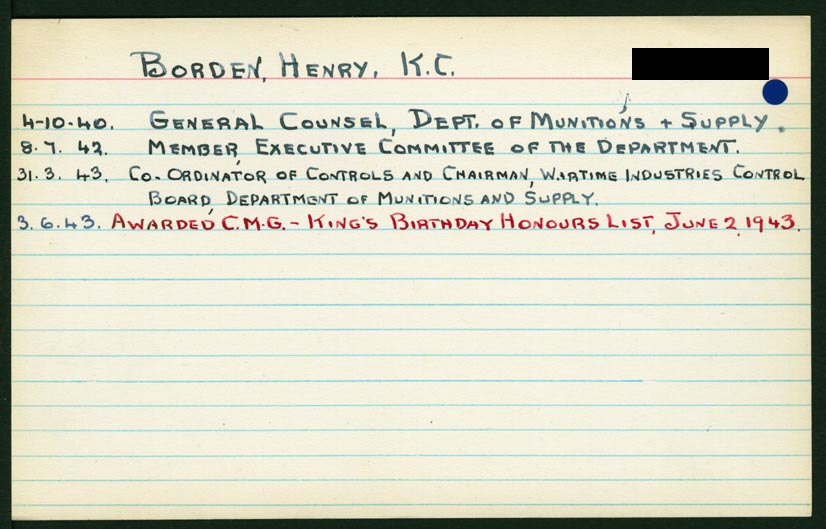 BORDEN, HENRY, K.C.
4-10-40. GENERAL COUNSEL, DEPT. OF MUNITIONS + SUPPLY.
8.7.42. MEMBER, EXECUTIVE COMMITTEE OF THE DEPARTMENT.
31.3.43. CO-ORDINATOR OF CONTROLS AND CHAIRMAN, WARTIME INDUSTRIES CONTROL
BOARD, DEPARTMENT OF MUNITIONS AND SUPPLY.
3.6.43. AWARDED C.M.G. - KING'S BIRTHDAY HONOURS LIST, JUNE 2, 1943.